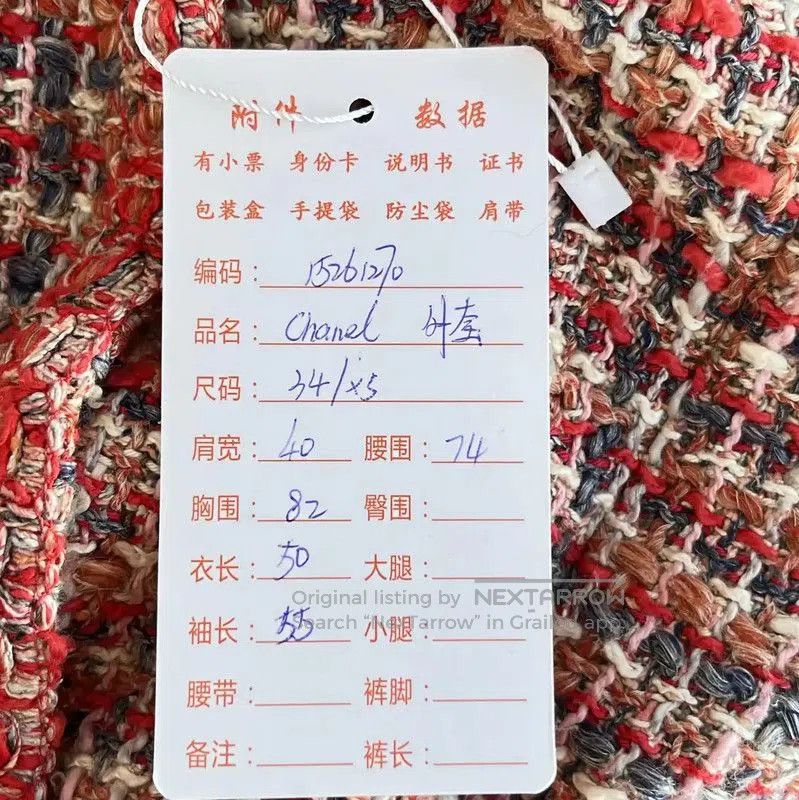 附件 数据
有小票 身份卡 说明书 证书
包装盒 手提袋 防尘袋 肩带
编码：15261270
品名：Chanel 外套
尺码：34/xs
肩宽：40 腰围：74
胸围：82 臀围：
衣长：50 大腿：
Original listing by NEXTARROW
Search “NexTarrow” in Grailed app
袖长：55 小腿：
腰带： 裤脚：
备注： 裤长：